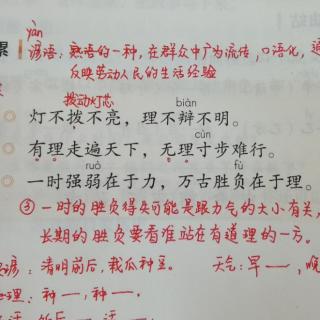 yàn
累 谚语：熟语的一种，在群众中广为流传，口语化，通
反映劳动人民的生活经验
拨动灯芯 biàn
灯不拨不亮，理不辩不明。
cùn
有理走遍天下，无理寸步难行。
ruò fù
一时强弱在于力，万古胜负在于理。
③ 一时的胜负得失可能是跟力气的大小有关，
长期的胜负要看谁站在有道理的一方。
谚：清明前后，栽瓜种豆。 天气：早一，晚
理：种一，种一.